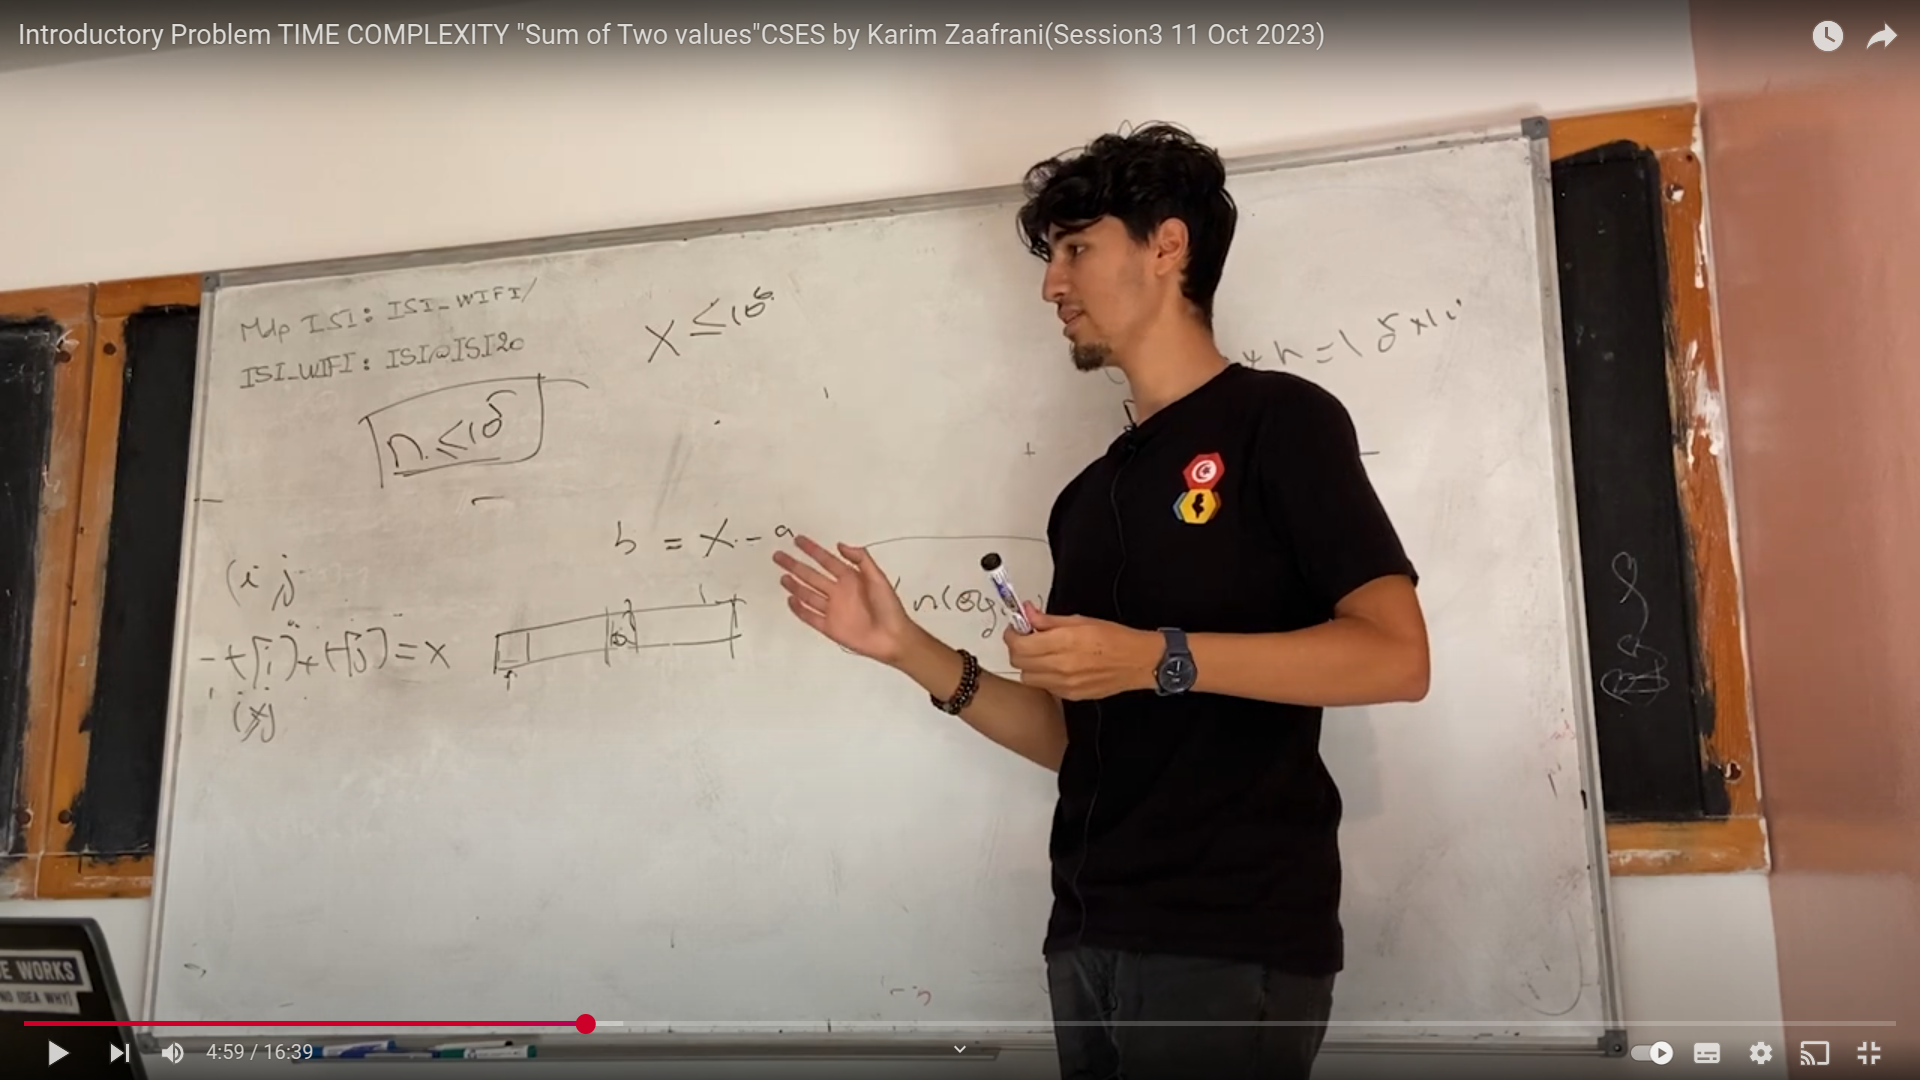 Introductory Problem TIME COMPLEXITY "Sum of Two values"CSES by Karim Zaafrani(Session3 11 Oct 2023)
Mdp ISI: ISI_WIFI/
ISI_WIFI: ISI@ISI20
x ≤ 10⁶
n ≤ 10⁵
b = x - a
(i j)
t[i] + t[j] = x
E WORKS
NO IDEA WHY)
4:59 / 16:39